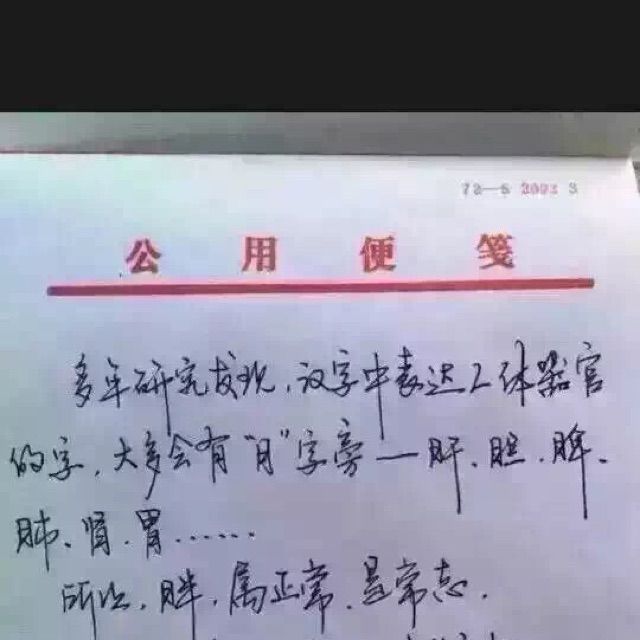 72-5 2003 3
公用便笺
多年研究发现，汉字中表述人体器官
的字，大多会有“月”字旁—肝、胆、脾、
肺、肾、胃……
所以，胖，属正常，是常态。